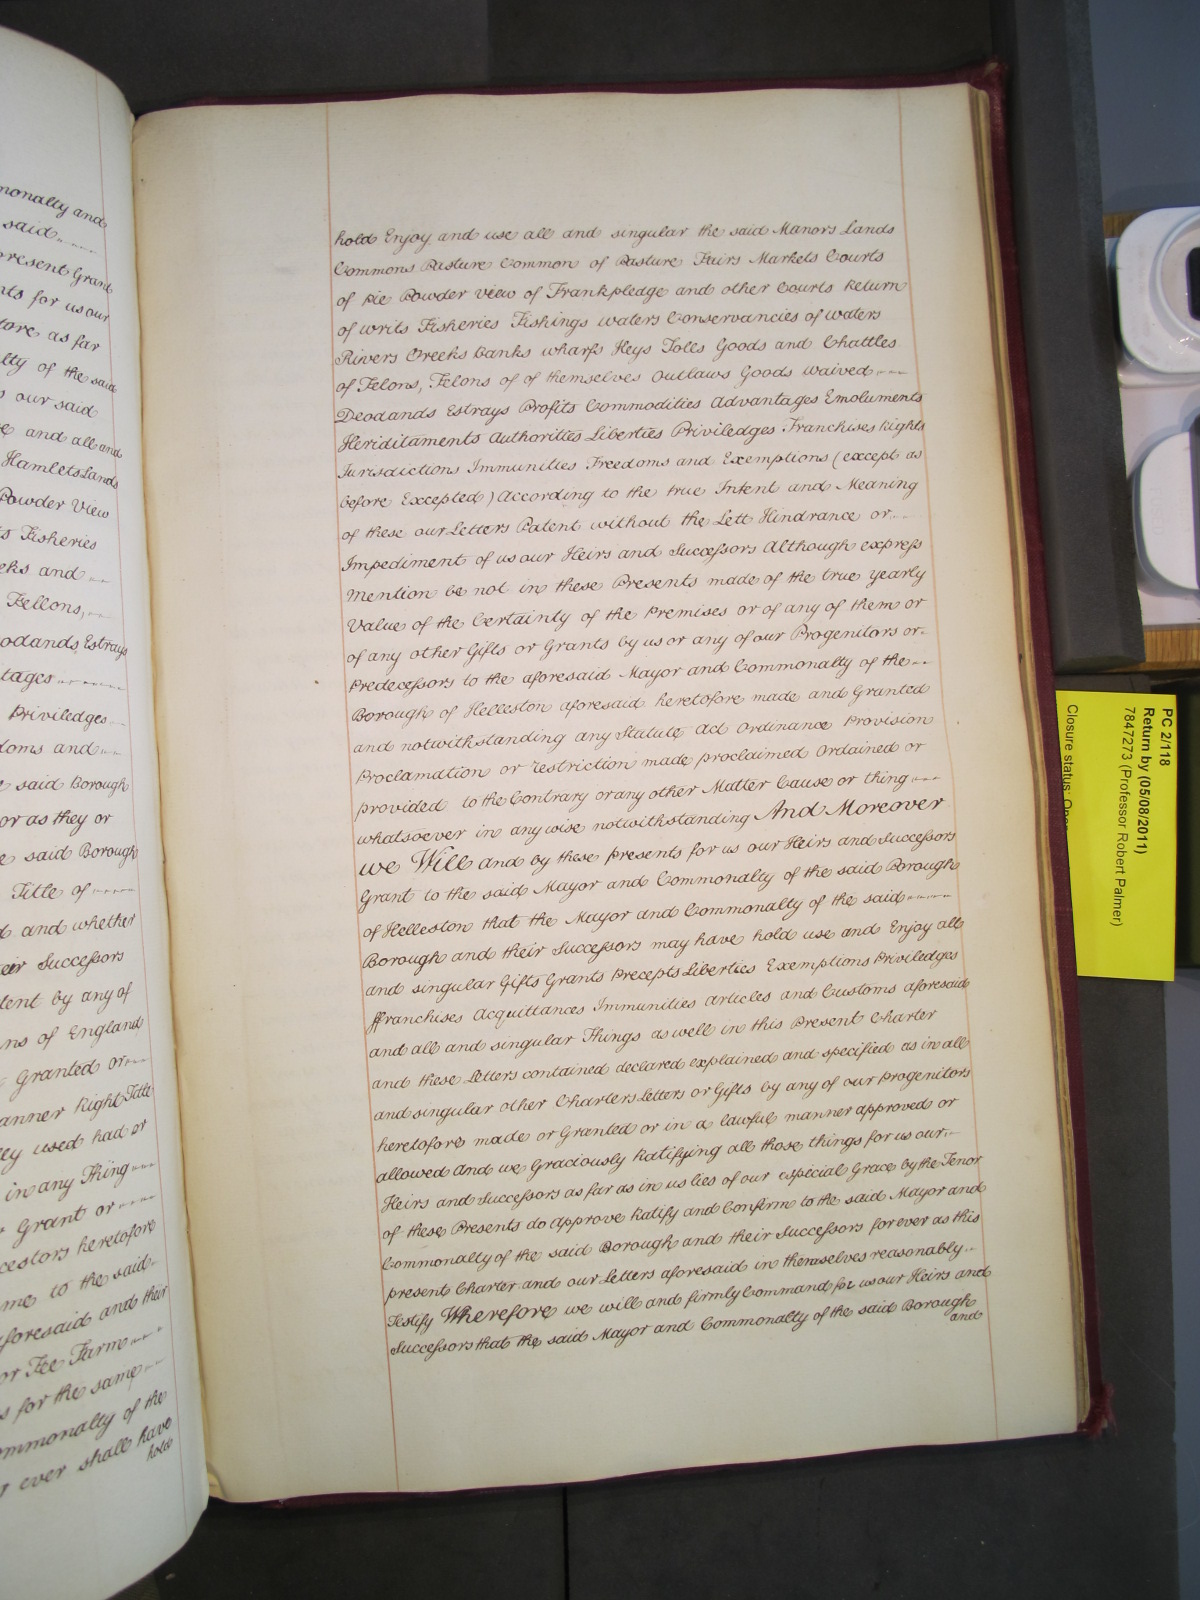 monalty and
said
present Grant
nts for us our
fore as far
lty of the said
our said
e and all and
Hamlets Lands
Powder View
s Fisheries
eks and
Fellons,
odands, Estrays
tages
Priviledges
doms and
e said Borough
or as they or
e said Borough
Title of
d and whether
eir Successors
dent by any of
ns of England
Granted or
anner Right Title
ey used had or
in any Thing
Grant or
cestors heretofore
me to the said
aforesaid and their
or Fee Farm
s for the same
ommonalty of the
r ever shall have
hold
hold Enjoy and use all and singular the said Manors Lands
Commons Pasture Common of Pasture Fairs Markets Courts
of pie Powder view of Frankpledge and other Courts Return
of writs Fisheries Fishings waters Conservancies of waters
Rivers Creeks banks wharfs Keys Tolls Goods and Chattles
of Felons, Felons of of themselves outlaws Goods waived
Deodands Estrays Profits Commodities advantages Emoluments
Heriditaments Authorities Liberties Priviledges Franchises Rights
Jurisdictions Immunities Freedoms and Exemptions (except as
before Excepted) According to the true Intent and Meaning
of these our Letters Patent without the Lett Hindrance or
Impediment of us our Heirs and Successors Although express
mention be not in these Presents made of the true yearly
Value of the Certainty of the Premises or of any of them or
of any other Gifts or Grants by us or any of our Progenitors or
Predecessors to the aforesaid Mayor and Commonalty of the
Borough of Helleston aforesaid heretofore made and Granted
and notwithstanding any Statute Act Ordinance Provision
Proclamation or restriction made proclaimed Ordained or
provided to the Contrary or any other Matter Cause or thing
whatsoever in any wise notwithstanding And Moreover
we Will and by these presents for us our Heirs and Successors
Grant to the said Mayor and Commonalty of the said Borough
of Helleston that the Mayor and Commonalty of the said
Borough and their Successors may have hold use and Enjoy all
and singular Gifts Grants Precepts Liberties Exemptions Priviledges
ffranchises Acquittances Immunities articles and Customs aforesaid
and all and singular Things as well in this Present Charter
and these Letters contained declared explained and specified as in all
and singular other Charters Letters or Gifts by any of our Progenitors
heretofore made or Granted or in a lawful manner approved or
allowed and we Graciously Ratifying all those things for us our
Heirs and Successors as far as in us lies of our especial Grace by the Tenor
of these Presents do approve Ratify and Confirm to the said Mayor and
Commonalty of the said Borough and their Successors for ever as this
present Charter and our Letters aforesaid in themselves reasonably
Testify Wherefore we will and firmly Command for us our Heirs and
Successors that the said Mayor and Commonalty of the said Borough
and
PC 2/118
Return by (05/08/2011)
7847273 (Professor Robert Palmer)
Closure status: Open